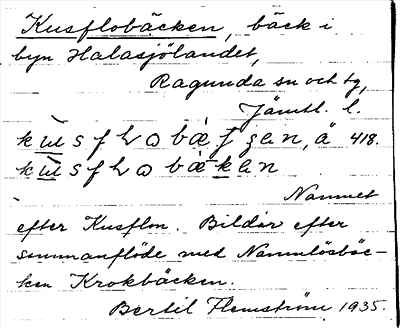 Kusflobäcken, bäck i
byn Halasjölandet,
Ragunda sn och tg,
Jämtl. l.
418.
Namnet
efter Kusflon. Bildar efter
sammanflöde med Namnlösbäc-
ken Krokbäcken.
Bertil Flemström 1935.